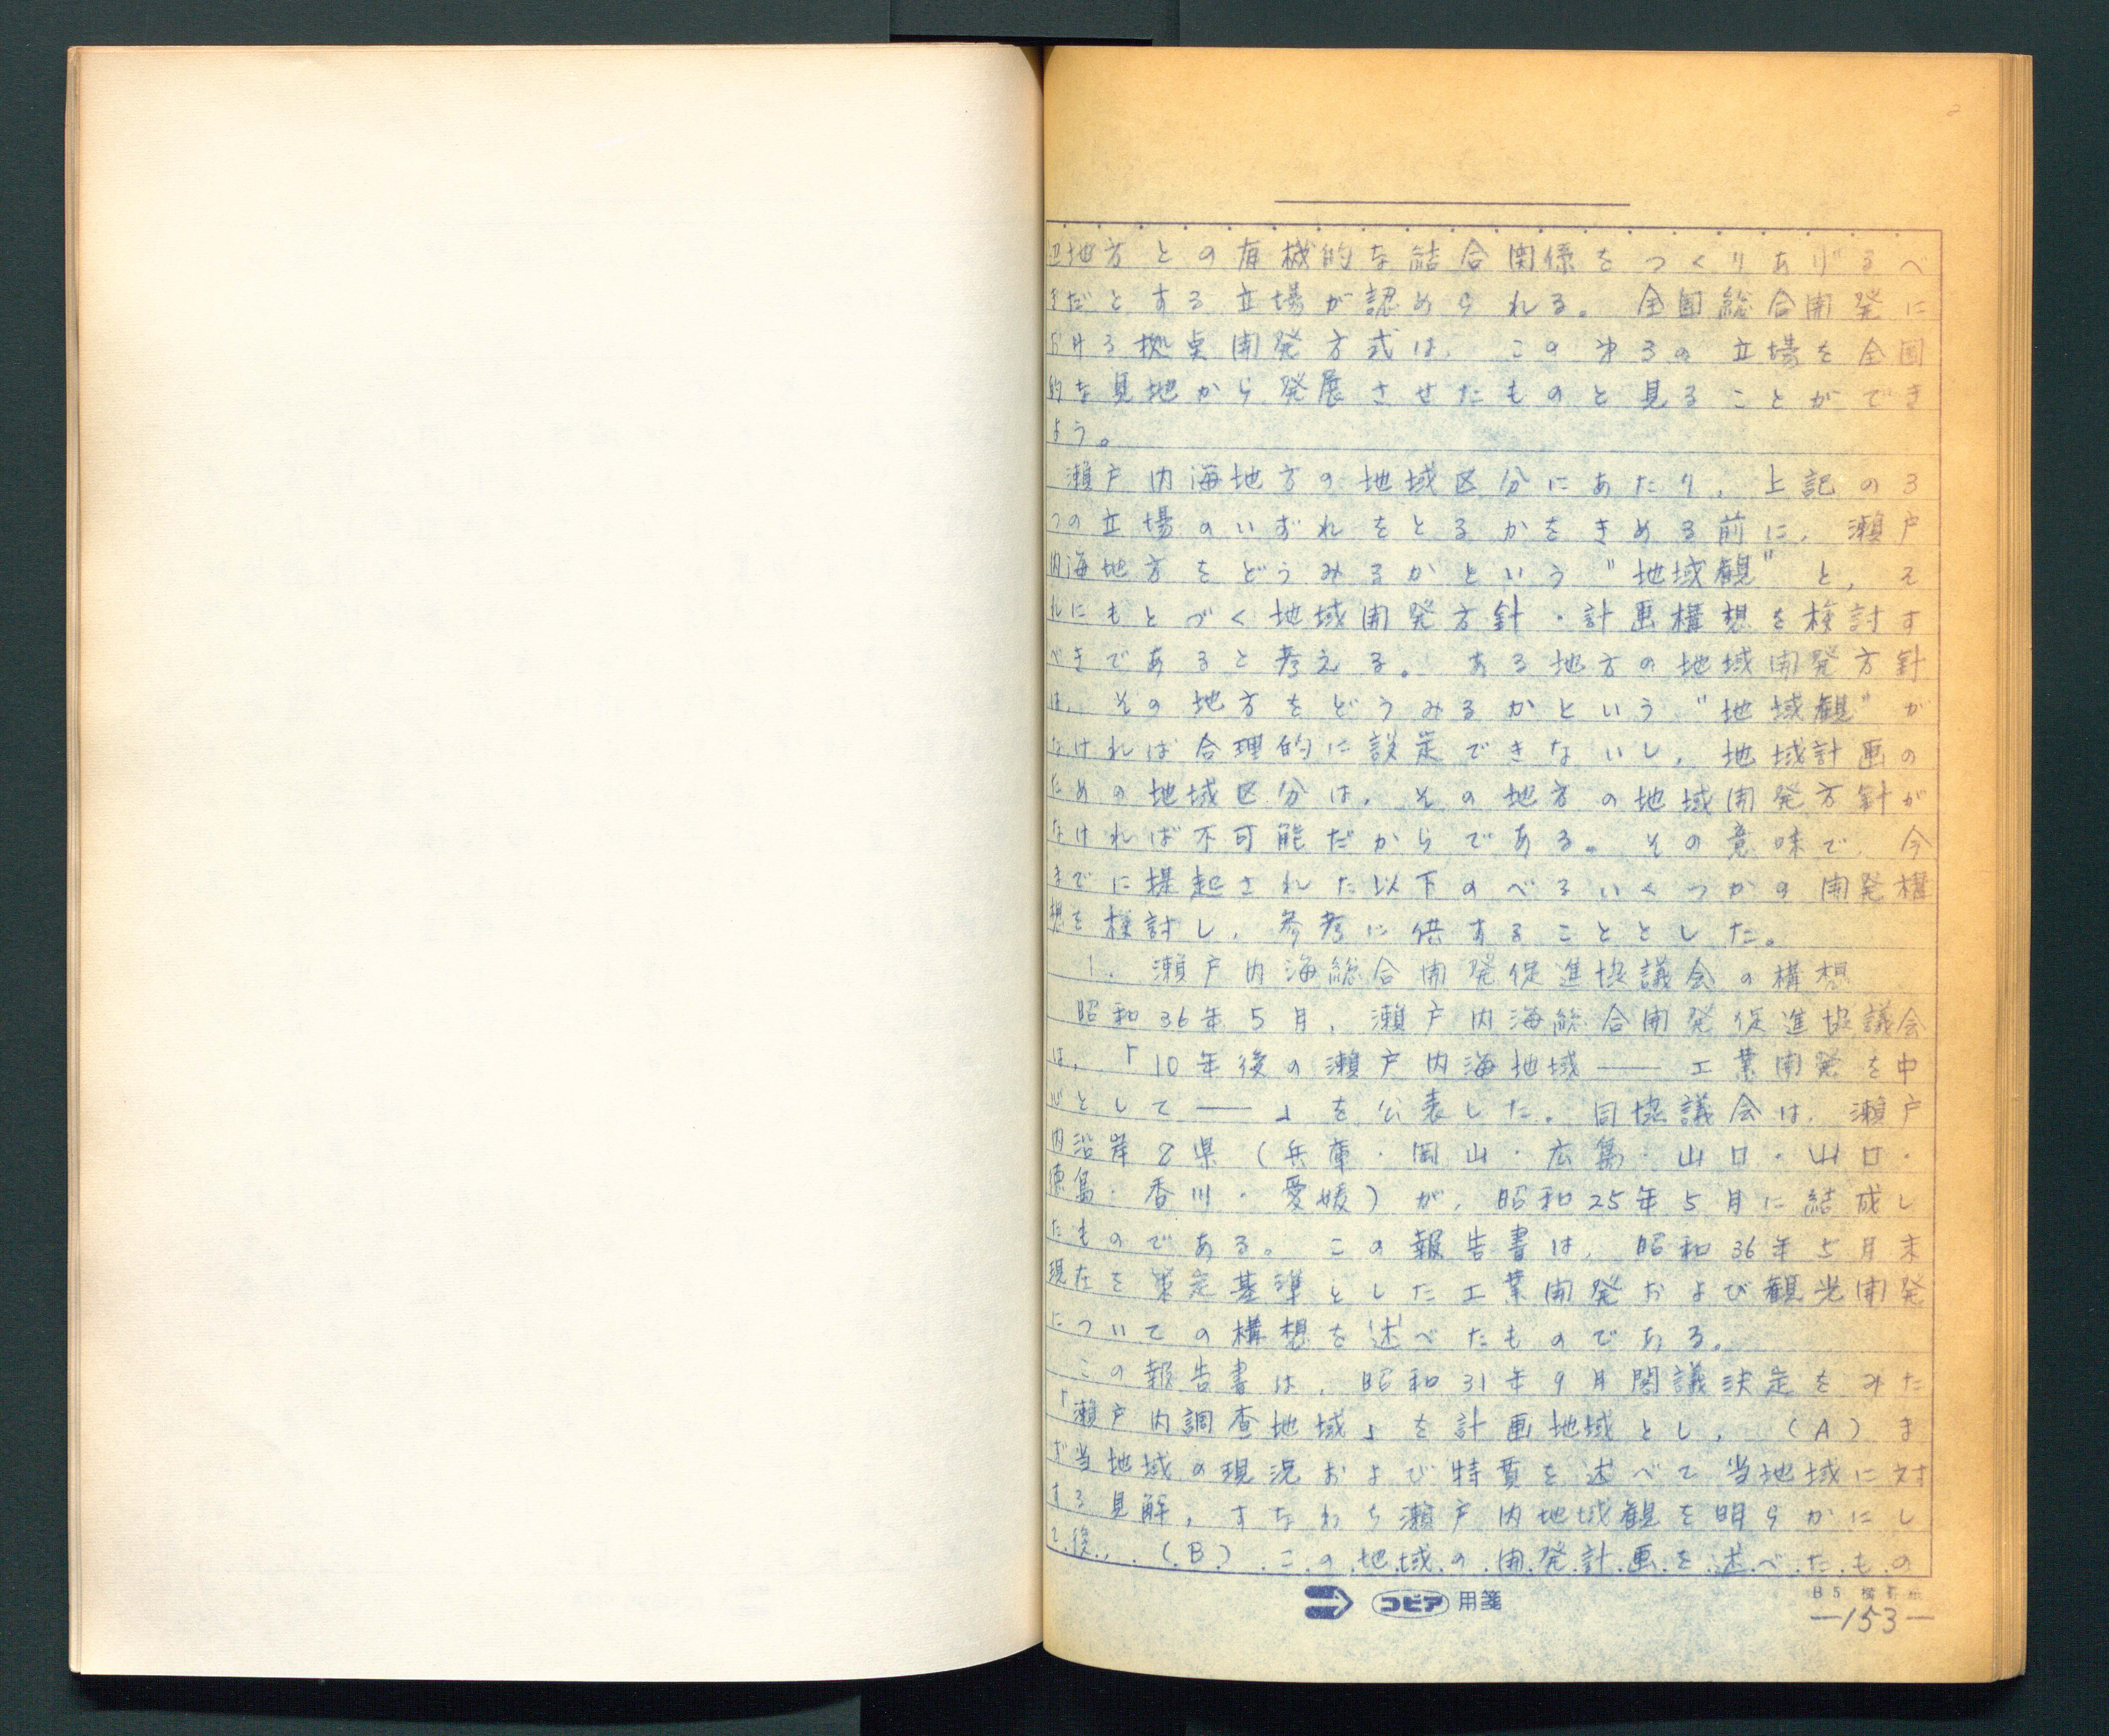 辺地方との有機的な結合関係をつくりあげるべ
きだとする立場が認められる。全国総合開発に
おける拠点開発方式は、この第3の立場を全国
的な見地から発展させたものと見ることができ
よう。
瀬戸内海地方の地域区分にあたり、上記の3
つの立場のいずれをとるかをきめる前に、瀬戸
内海地方をどうみるかという"地域観"と、そ
れにもとづく地域開発方針・計画構想を検討す
べきであると考える。ある地方の地域開発方針
は、その地方をどうみるかという"地域観"が
なければ合理的に設定できないし、地域計画の
ための地域区分は、その地方の地域開発方針が
なければ不可能だからである。その意味で、今
までに提起された以下のべるいくつかの開発構
想を検討し、参考に供することとした。
1. 瀬戸内海総合開発促進協議会の構想
昭和36年5月、瀬戸内海総合開発促進協議会
は、「10年後の瀬戸内海地域——工業開発を中
心として——」を公表した。同協議会は、瀬戸
内沿岸8県(兵庫・岡山・広島・山口・山口・
徳島・香川・愛媛)が、昭和25年5月に結成し
たものである。この報告書は、昭和36年5月末
現在を策定基準とした工業開発および観光開発
についての構想を述べたものである。
この報告書は、昭和31年9月閣議決定をみた
「瀬戸内調査地域」を計画地域とし、(A)ま
ず当地域の現況および特質を述べて当地域に対
する見解、すなわち瀬戸内地域観を明らかにし
て後、(B)この地域の開発計画を述べたもの
コピア用箋
B5 横書
—153—